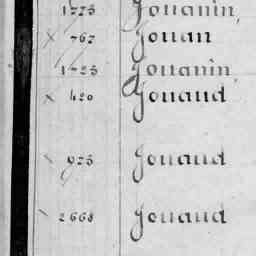 1723 Jouanin,
× 762 Jouan
1723 Jouanin,
× 420 Jouaud
\ 923 Jouaud
\ 2668 Jouaud